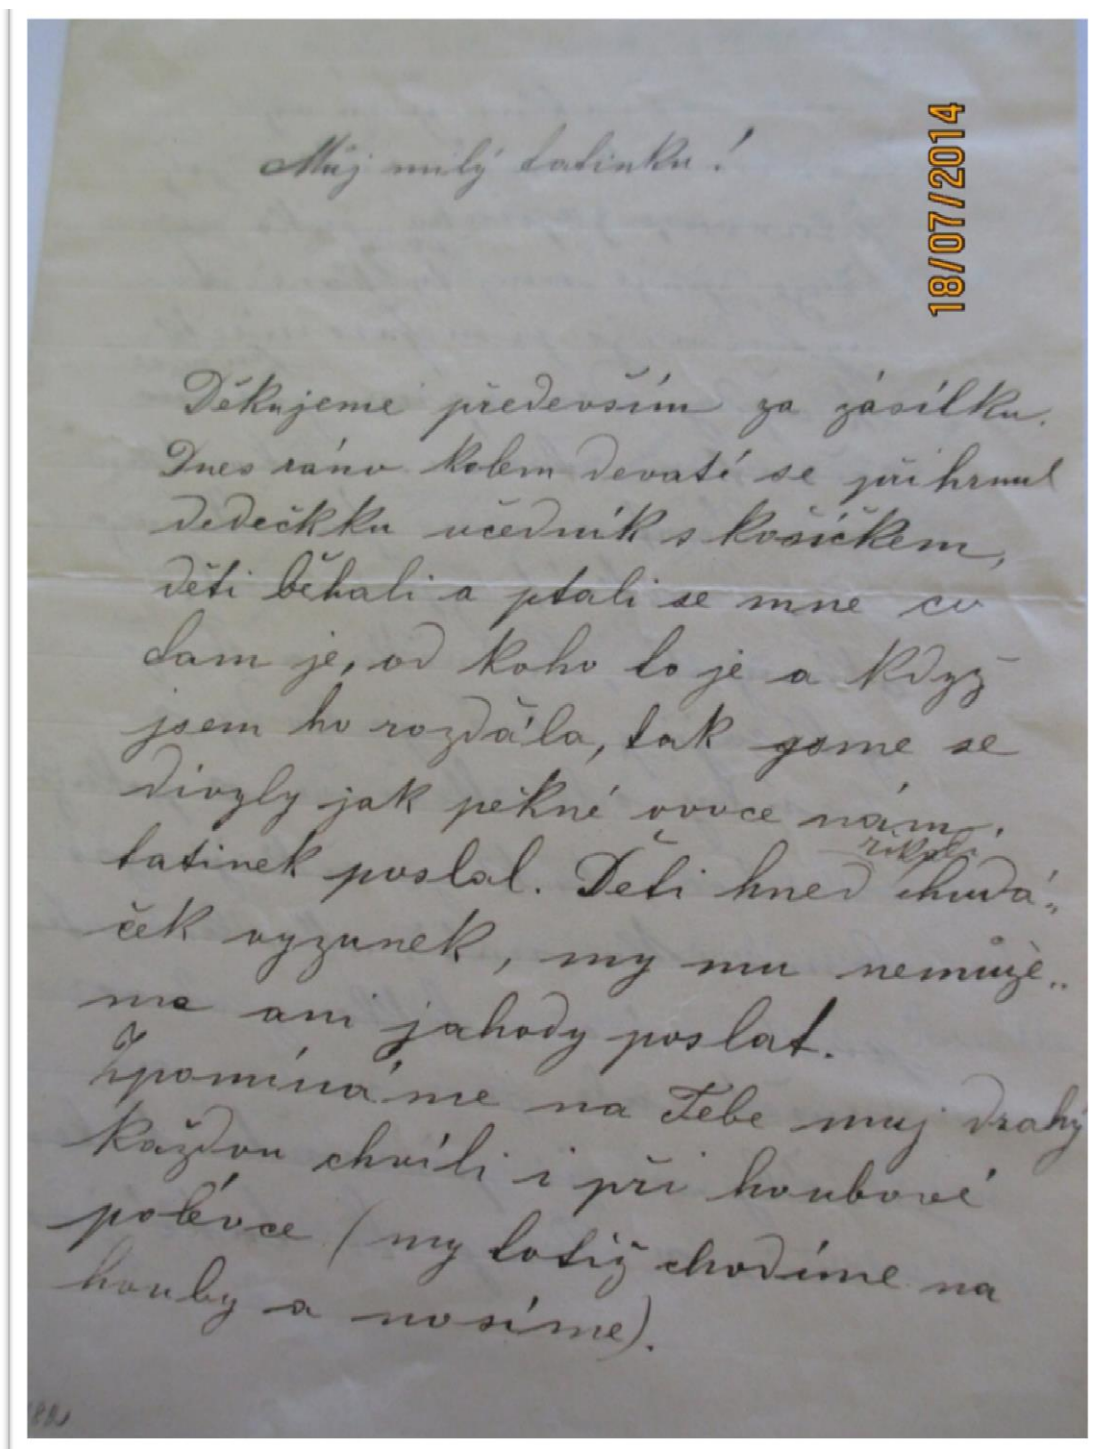 18/07/2014
Můj milý tatínku!
Děkujeme především za zásílku.
Dnes ráno kolem devatí se přihrnul
dedečkku učedník s košíčkem,
děti běhali a ptali se mne co
tam je, od koho to je a když
jsem ho rozdála, tak jsme se
divyly jak pěkné ovoce nám
tatinek poslal. Děti hned řikali chudá„
ček vyzunek, my mu nemůže„
me ani jahody poslat.
Zpomínáme na Tebe muj drahý
každou chvíli i při houbové
polévce (my totiž chodíme na
houby a nosíme).